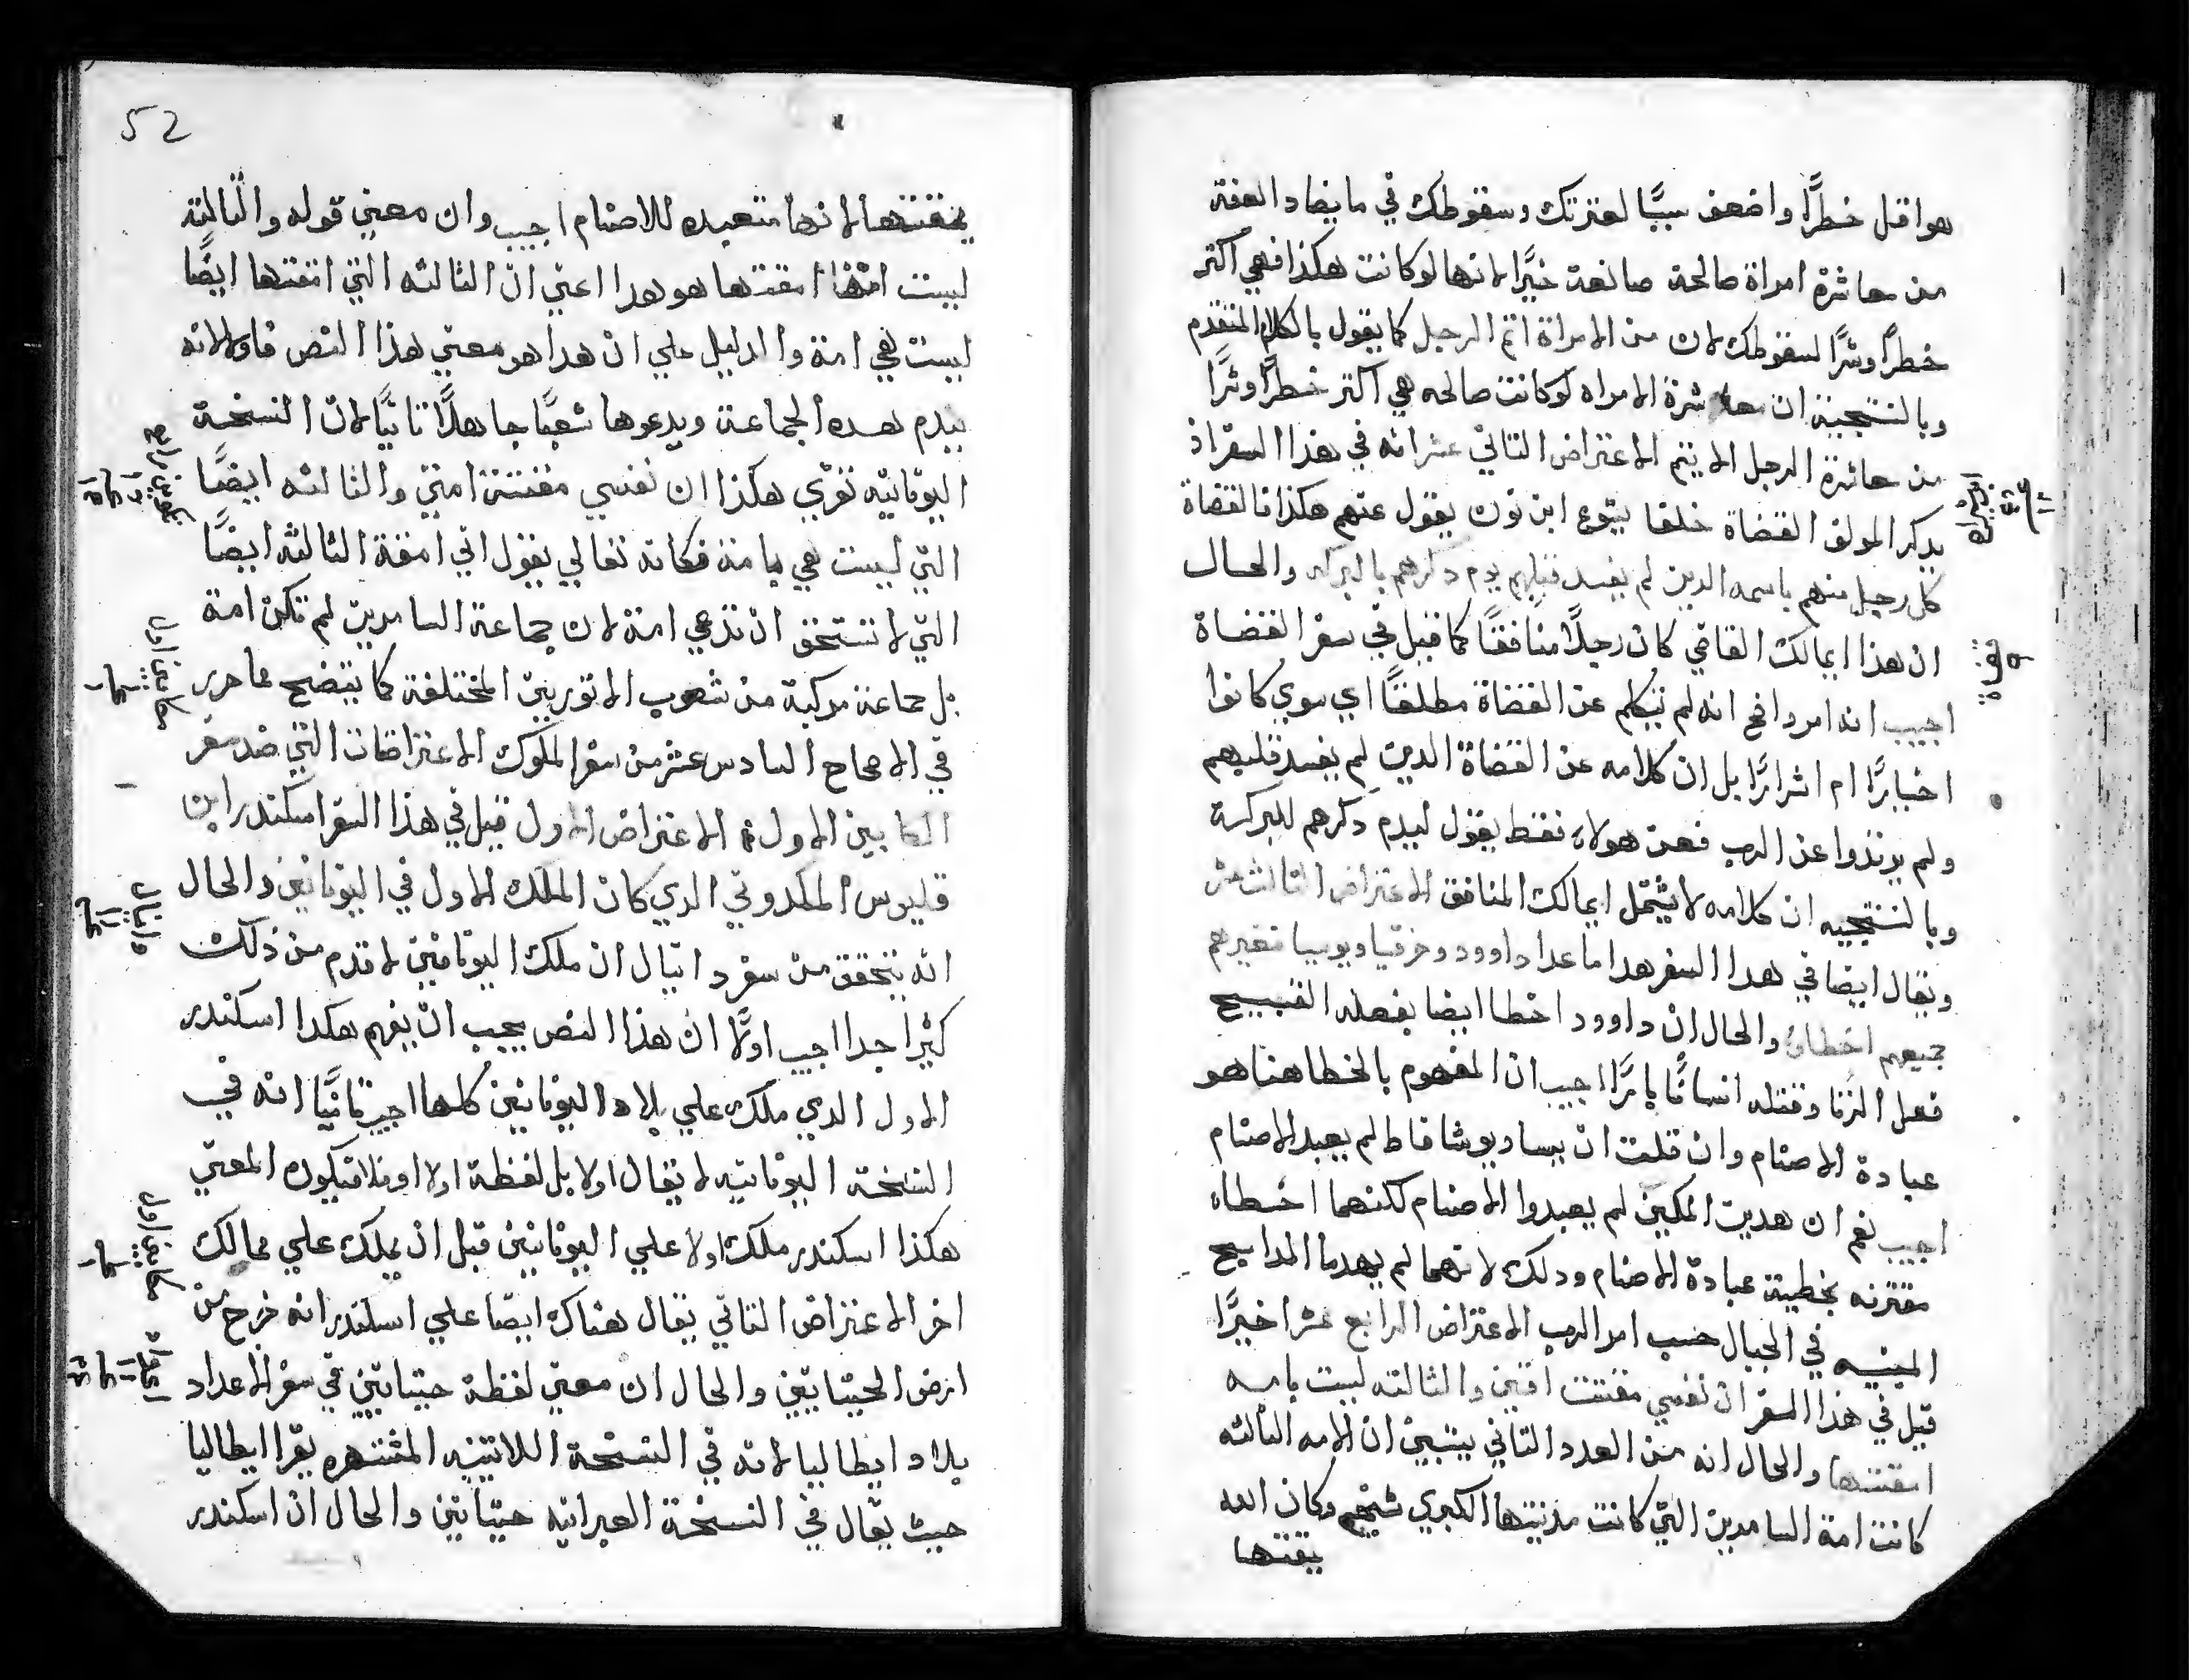 هو اقل خطرًا واضعف سببًا لعترتك وسقوطك في ما يضاد العفة
من معاشرة امراة صالحة صانعة خيرًا لانها لو كانت هكذا فهي اكتر
خطرًا وشرًا لسقوطك لان من الامراة اتم الرجل كما يقول بالكلام المتقدم
وبالنتيجة ان معاشرة الامراه لو كانت صالحه هي اكتر خطرًا وشرًا
من معاشرة الرجل الايتم الاعتراض التاني عشر انه في هذا السفر اذ
يدكر المولف القضاة خلفا يشوع ابن نون يقول عنهم هكذا فالقضاة
كل رجل منهم باسمه الدين لم يفسد قبلهم يدم دكرهم بالبركه والحال
ان هذا ابيمالك القاضي كان رجلًا منافقًا كما قيل في سفر القضاة
اجيب انه امر واضح انه لم يتكلم عن القضاة مطلقًا اي سوي كانوا
اخيارًا ام اشرارًا بل ان كلامه عن القضاة الدين لم يفسد قلبهم
ولم يرتدوا عن الرب فعن هولاء فقط يقول ليدم دكرهم للبركة
وبالنتيجيه ان كلامه لا يشتمل ابيمالك المنافق الاعتراض التالت عشر
ويقال ايضا في هدا السفر هدا ما عدا داوود وحزقيا ويوسيا فغيرهم
جميعهم اخطاوا والحال ان داوود اخطا ايضا بفعله القبيح
فعل الزنا وقتله انسانًا بارًا اجيب ان المفهوم بالخطا هنا هو
عبادة الاصنام وان قلت ان يساو يوشافاط لم يعبد الاصنام
اجيب نعم ان هدين الملكين لم يعبدوا الاصنام لكنهما اخطاه
مقترنه بخطية عبادة الاصنام ودلك لانهما لم يهدما المدابح
المبنيه في الجبال حسب امر الرب الاعتراض الرابع عشر اخيرًا
قيل في هذا السفر ان نفسي مقتت امتين والتالته ليست بامه
امقتها والحال انه من العدد التاني يتبين ان الامه التالته
كانت امة السامرين التي كانت مدينتها الكبري شيخم وكان الله
يمقتها
52
يمقتها لانها متعبده للاصنام اجيب وان معني قوله والتالته
ليست امة امقتها هو هدا اعني ان التالته التي امقتها ايضًا
ليست هي امة والدليل علي ان هدا هو معني هذا النص فاولا لانه
يدم هده الجماعة ويدعوها شعبًا جاهلًا تانيًا لان النسخة
اليونانيه تقري هكذا ان نفسي مقتت امتين والتالته ايضًا
التي ليست هي بامة فكانه تعالي يقول اني امقة التالثه ايضًا
التي لا تستحق ان تدعي امة لان جماعة السامرين لم تكن امة
بل جماعة مركبة من شعوب الاتوريين المختلفة كما يتضح مما حرر
في الاصحاح السادس عشر من سفر الملوك الاعتراضات التي ضد سفر
المكابين الاول الاعتراض الاول قيل في هذا السفر اسكندر ابن
فليبوس المكدوني الدي كان الملك الاول في اليونانين والحال
انه يتحقق من سفر دانيال ان ملك اليونانين لاقدم من ذلك
كتيرًا جدا اجيب اولًا ان هذا النص يجب ان يفهم هكدا اسكندر
الاول الدي ملك علي بلاد اليونانين كلها اجيب تانيًا انه في
النسخة اليونانيه لا يقال اولا بل لفظة اولا وفلا فيكون المعني
هكذا اسكندر ملك اولا علي اليونانين قبل ان يملك علي ممالك
اخر الاعتراض التاني يقال هناك ايضا علي اسكندر انه خرج من
ارض الحيتايين والحال ان معني لفظة حيتايين في سفر الاعداد
بلاد ايطاليا لانه في النسخة اللاتينيه المشتهره يقرا ايطاليا
حيث يقال في النسخة العبرانيه حيتانين والحال ان اسكندر